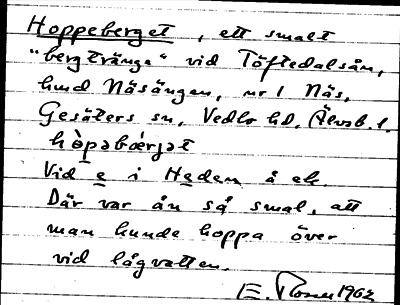 Hoppeberget, ett smalt
"bergtränge" vid Töftedalsån,
hmd Näsängen, nr 1 Näs,
Gesäters sn, Vedbo hd, Älvsb. l.
hòpəbærjət
Vid e i Heden å ek.
Där var ån så smal, att
man kunde hoppa över
vid lågvatten.
E. 1962